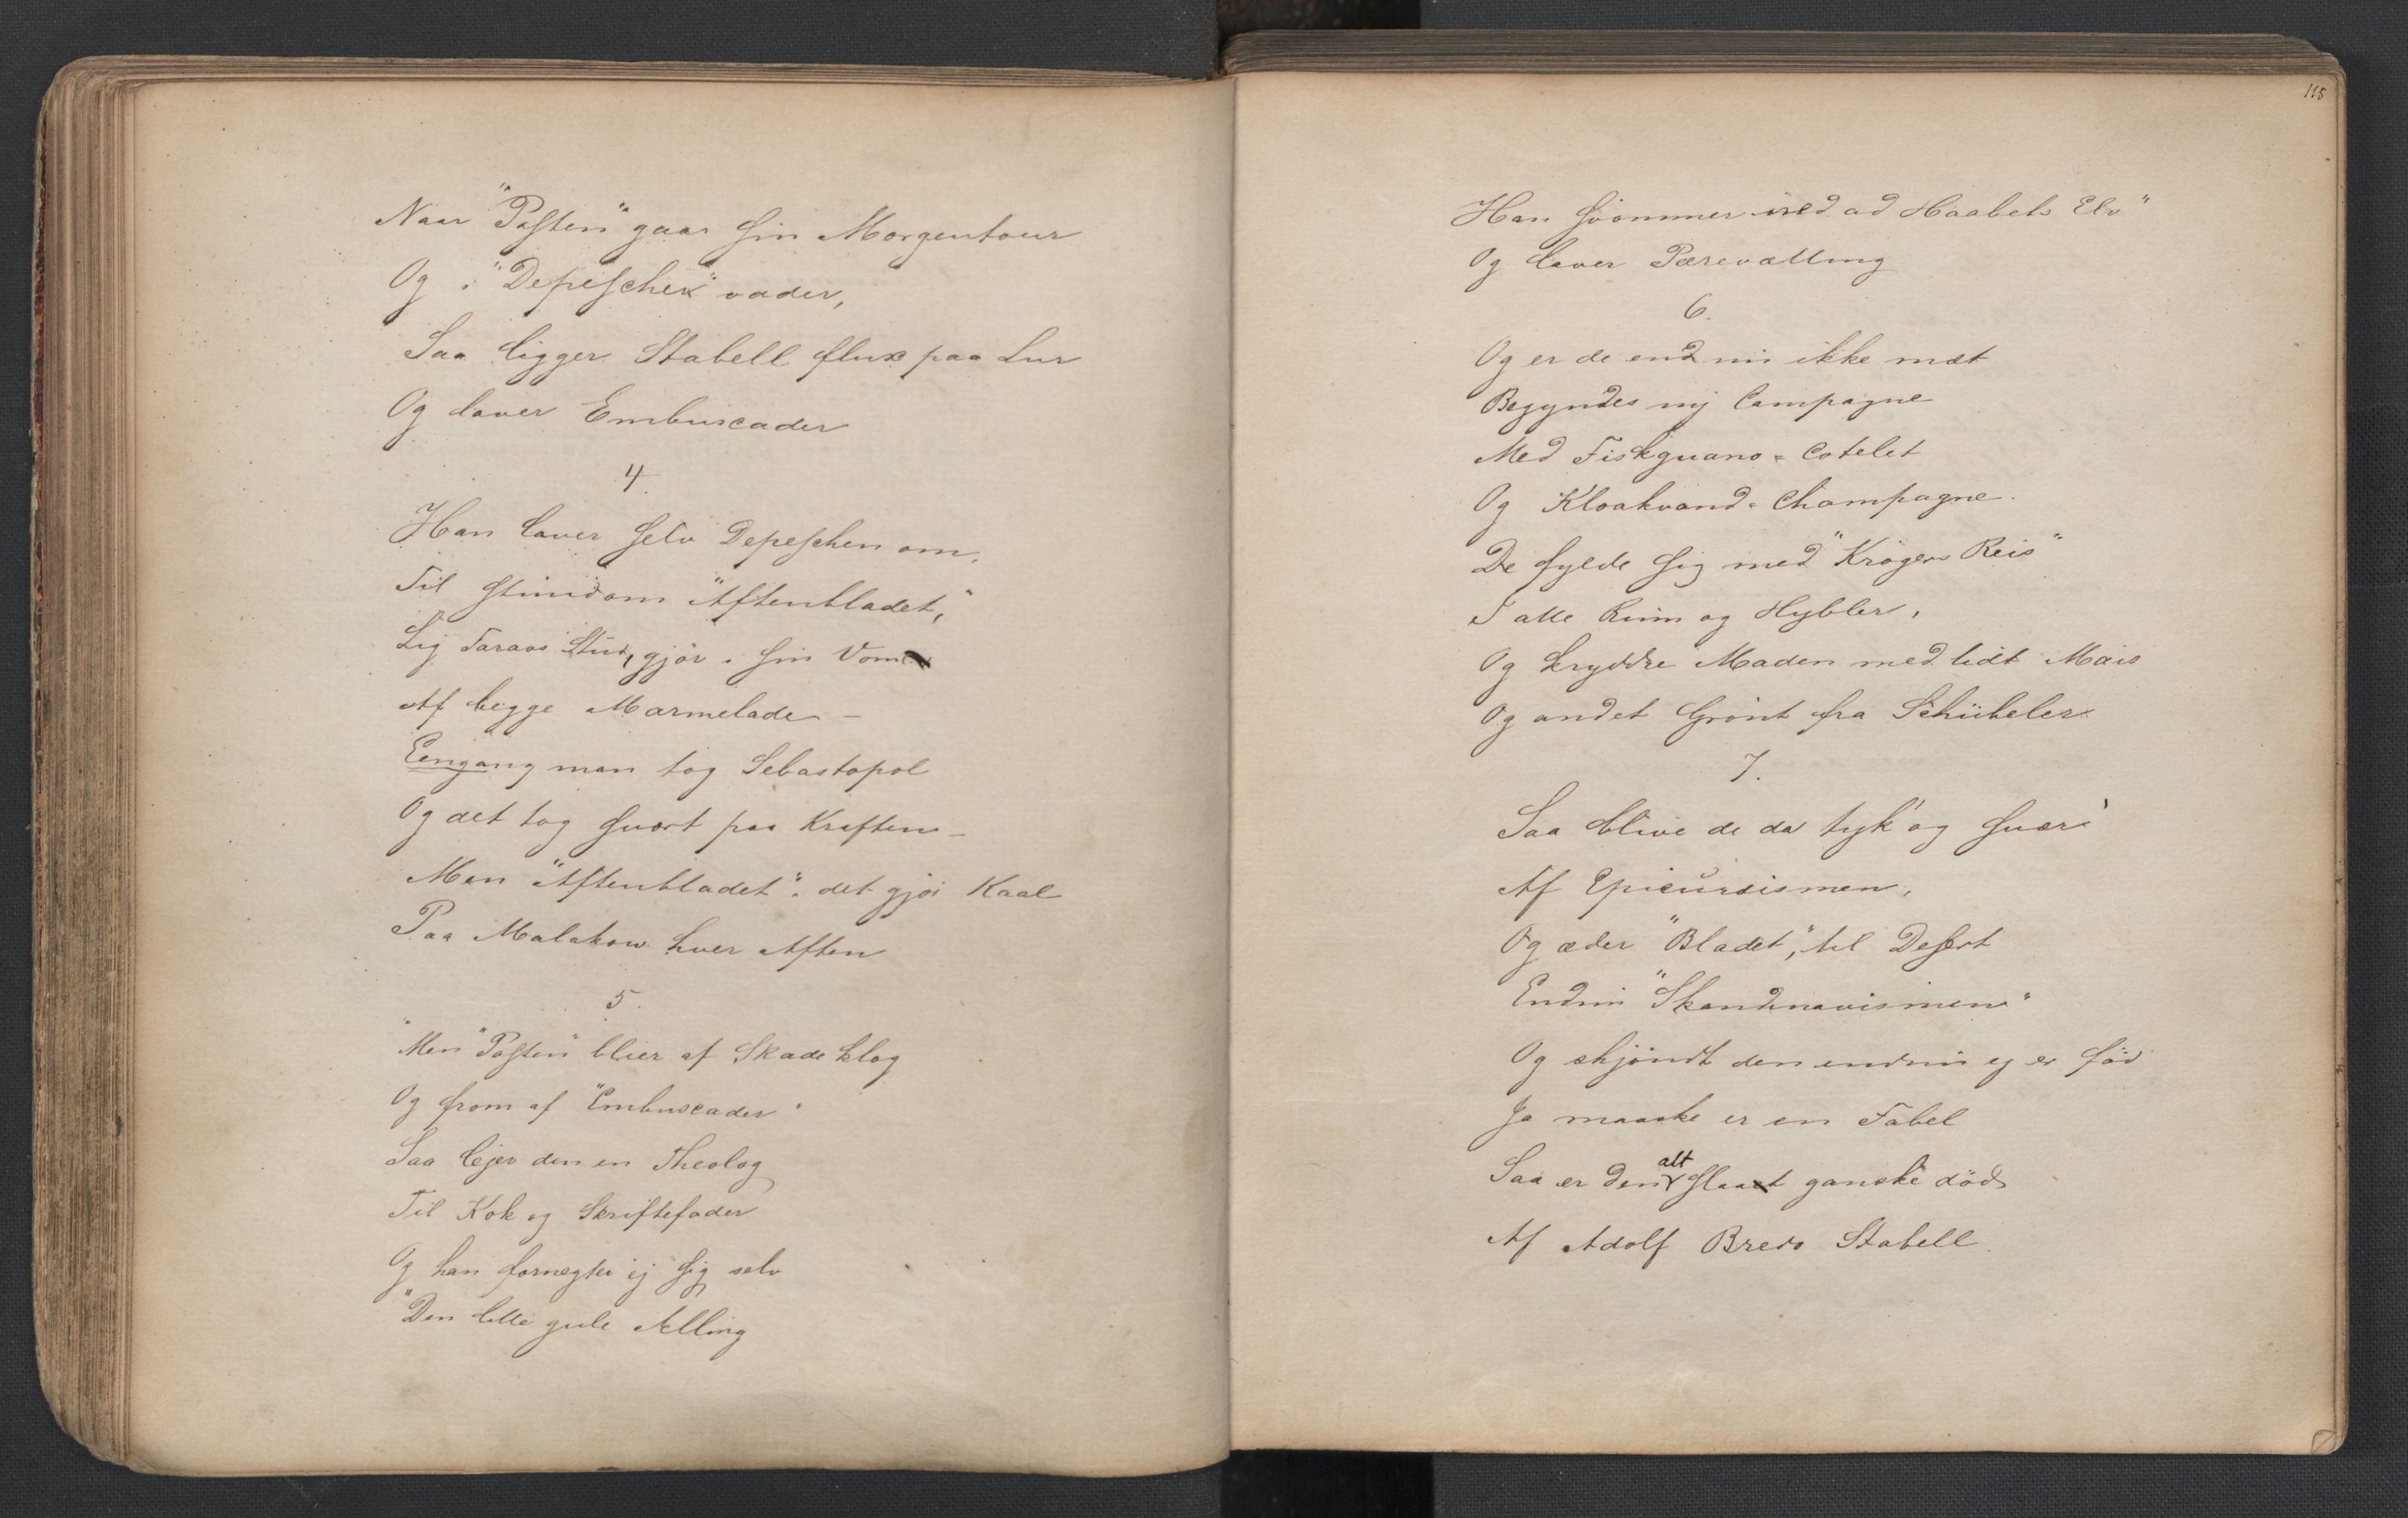 Naar "Posten" gaar sin Morgentour
Og i "Depescher" vader,
Saa ligger Stabell flux paa Lur
Og laver Embuscader
4.
Han laver selv Depeschen om,
Til stinidom "Aftenbladet,"
Lig Faraos Stud, gjör i sin Vom
Af begge Marmelade –
Eengang man tog Sebastopol
Og det tog svært paa Kraften –
Men "Aftenbladet" det gjör Kaal
Paa Malakow hver Aften
5.
"Men "Posten" blier af Skade klog
Og from af "Embuscader"
Saa lejer den en Theolog
Til Kok og Skriftefader
Og han fornegter ej sig selv
"Den lille gule Ælling
115
Han svömmer ned ad Haabets Elv"
Og laver Pærevælling
6.
Og er de end nu ikke mæt
Begyndes nij Campagne
Med Fiskguano-Cotelet
Og Kloakvand-Champagne.
De fylde sig med "Krögers Reis"
I alle Rum og Hybler,
Og kryddre Maden med lidt Mais
Og andet Grönt fra Schübeler
7.
Saa blive de da tyk' og svær'
Af Epicuræismen,
Og æder "Bladet", til Desert
Endnu "Skandinavismen"
Og skjöndt den endnu ej er föd
Ja maaske er en Fabel
Saa er den alt slaaet ganske död
Af Adolf Bredo Stabell